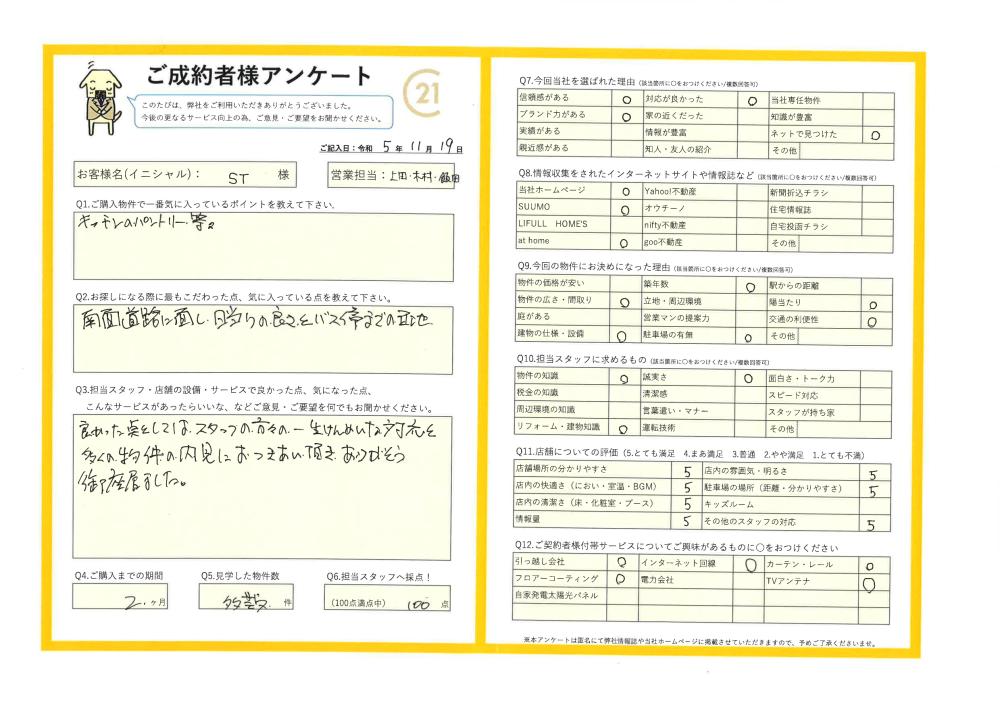 ご成約者様アンケート
21
このたびは、弊社をご利用いただきありがとうございました。
今後の更なるサービス向上の為、ご意見・ご要望をお聞かせください。
ご記入日：令和 5 年 11 月 19 日
お客様名(イニシャル)： ST 様
営業担当：上田・木村・飯田
Q1.ご購入物件で一番気に入っているポイントを教えて下さい。
キッチンのパントリー.等。
Q2.お探しになる際に最もこだわった点、気に入っている点を教えて下さい。
南面道路に面し、日当りの良さとバス停までの立地
Q3.担当スタッフ・店舗の設備・サービスで良かった点、気になった点、
こんなサービスがあったらいいな、などご意見・ご要望を何でもお聞かせください。
良かった点としては、スタッフの方々の一生けんめいな対応と
多くの物件の内見におつきあい頂きありがとう
御座居ました。
Q4.ご購入までの期間
2.ヶ月
Q5.見学した物件数
多数. 件
Q6.担当スタッフへ採点！
(100点満点中) 100 点
Q7.今回当社を選ばれた理由 (該当箇所に〇をおつけください/複数回答可)
信頼感がある ○ 対応が良かった ○ 当社専任物件
ブランド力がある ○ 家の近くだった 知識が豊富
実績がある 情報が豊富 ネットで見つけた ○
親近感がある 知人・友人の紹介 その他
Q8.情報収集をされたインターネットサイトや情報誌など (該当箇所に〇をおつけください/複数回答可)
当社ホームページ ○ Yahoo!不動産 新聞折込チラシ
SUUMO ○ オウチーノ 住宅情報誌
LIFULL HOME'S nifty不動産 自宅投函チラシ
at home ○ goo不動産 その他
Q9.今回の物件にお決めになった理由 (該当箇所に〇をおつけください/複数回答可)
物件の価格が安い 築年数 ○ 駅からの距離
物件の広さ・間取り ○ 立地・周辺環境 陽当たり ○
庭がある 営業マンの提案力 交通の利便性 ○
建物の仕様・設備 ○ 駐車場の有無 ○ その他
Q10.担当スタッフに求めるもの (該当箇所に〇をおつけください/複数回答可)
物件の知識 ○ 誠実さ ○ 面白さ・トーク力
税金の知識 清潔感 スピード対応
周辺環境の知識 言葉遣い・マナー スタッフが持ち家
リフォーム・建物知識 ○ 運転技術 その他
Q11.店舗についての評価（5.とても満足 4.まあ満足 3.普通 2.やや満足 1.とても不満）
店舗場所の分かりやすさ 5 店内の雰囲気・明るさ 5
店内の快適さ（におい・室温・BGM） 5 駐車場の場所（距離・分かりやすさ） 5
店内の清潔さ（床・化粧室・ブース） 5 キッズルーム
情報量 5 その他のスタッフの対応 5
Q12.ご契約者様付帯サービスについてご興味があるものに〇をおつけください
引っ越し会社 ○ インターネット回線 ○ カーテン・レール ○
フロアーコーティング ○ 電力会社 TVアンテナ ○
自家発電太陽光パネル
※本アンケートは匿名にて弊社情報誌や当社ホームページに掲載させていただきますので、予めご了承くださいませ。